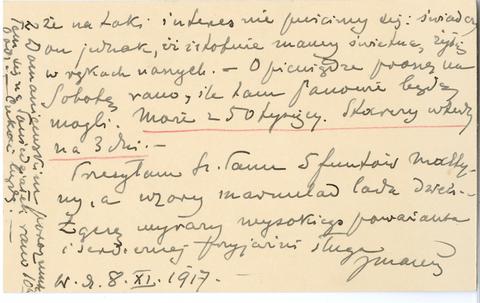 że na taki interes nie puścimy się: świadczy
on jednak, iż istotnie mamy świetną, rzecz
w rękach naszych. — O pieniądze proszę na
Sobotę rano, ile tam Panowie będą
mogli. Może z 50 tysięcy. Starczy wtedy
na 3 dni. —
Przesyłam Sz. Panu 5 funtów
ny, a wzory marmelad lada dzień. —
Łączę wyrazy wysokiego poważania
i serdecznej przyjaźni sługa
W. d. 8. XI. 1917. —
z Domaniewskim
rano 10